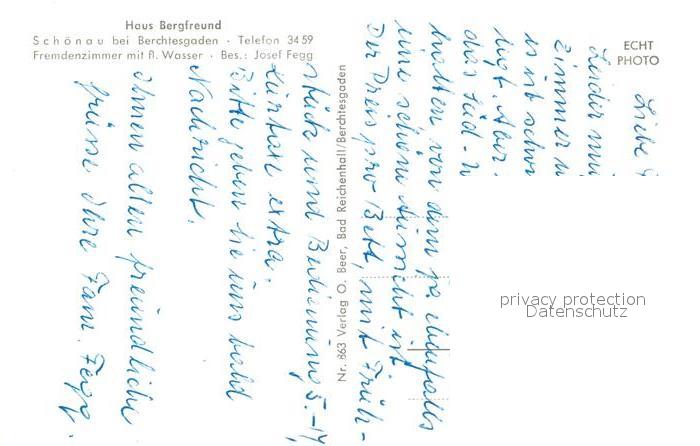 Haus Bergfreund
Schönau bei Berchtesgaden · Telefon 34 59
Fremdenzimmer mit fl. Wasser · Bes.: Josef Fegg
ECHT
PHOTO
Liebe
Leider
Zimmer
es ist schon
das Süd-
halten von dem
eine schöne Aussicht ist
Der Preis pro Bett, mit Früh-
stück und Bedienung, 5.-
Kurtaxe extra.
Bitte geben Sie uns bald
Nachricht.
Ihnen allen freundliche
Grüsse Ihre Fam. Fegg.
Nr. 863 Verlag O. Beer, Bad Reichenhall/Berchtesgaden
privacy protection
Datenschutz